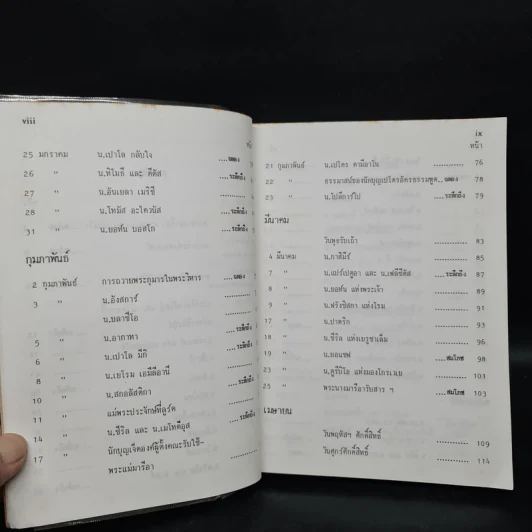 viii
25 มกราคม น.เปาโล กลับใจ ....ฉลอง
26 " น.ทิโมธี และ ติตัส ....ระลึกถึง
27 " น.อันเยลา เมริชี ............
28 " น.โทมัส อะไควนัส ....ระลึกถึง
31 " น.ยอห์น บอสโก ....ระลึกถึง
กุมภาพันธ์
2 กุมภาพันธ์ การถวายพระกุมารในพระวิหาร ....ฉลอง
3 " น.อังสการ์ ............
น.บลาซีโอ ............
5 " น.อากาทา ....ระลึกถึง
6 " น.เปาโล มีกี ....ระลึกถึง
8 " น.เยโรม เอมีลีอานี ............
10 " น.สกอลัสติกา ....ระลึกถึง
11 " แม่พระประจักษ์ที่ลูร์ด ............
14 " น.ซีริล และ น.เมโทดีอุส ....ระลึกถึง
17 " นักบุญเจ็ดองค์ผู้ตั้งคณะรับใช้-
พระแม่มารีอา ............
ix
หน้า
21 กุมภาพันธ์ น.เปโตร ดามีอาโน ............ 76
22 " ธรรมาสน์ของนักบุญเปโตรอัครธรรมทูต..ฉลอง 78
23 " น.โปลีการ์โป ....ระลึกถึง 79
มีนาคม
วันพุธรับเถ้า ............ 83
4 มีนาคม น.กาสิมีร์ ............ 85
7 " น.แปร์เปตูอา และ น.เฟลีซีตัส ....ระลึกถึง 87
8 " น.ยอห์น แห่งพระเจ้า ............ 88
9 " น.ฟรังซิสกา แห่งโรม ............ 91
17 " น.ปาตริก ............ 93
18 " น.ซีริล แห่งเยรูซาเล็ม ............ 96
19 " น.ยอแซฟ ....สมโภช 98
23 " น.ตูรีบิโอ แห่งมองโกรเวเย ............ 103
25 " พระนางมารีอารับสาร ฯ ....สมโภช 103
เมษายน
วันพฤหัสฯ ศักดิ์สิทธิ์ ............ 109
วันศุกร์ศักดิ์สิทธิ์ ............ 114